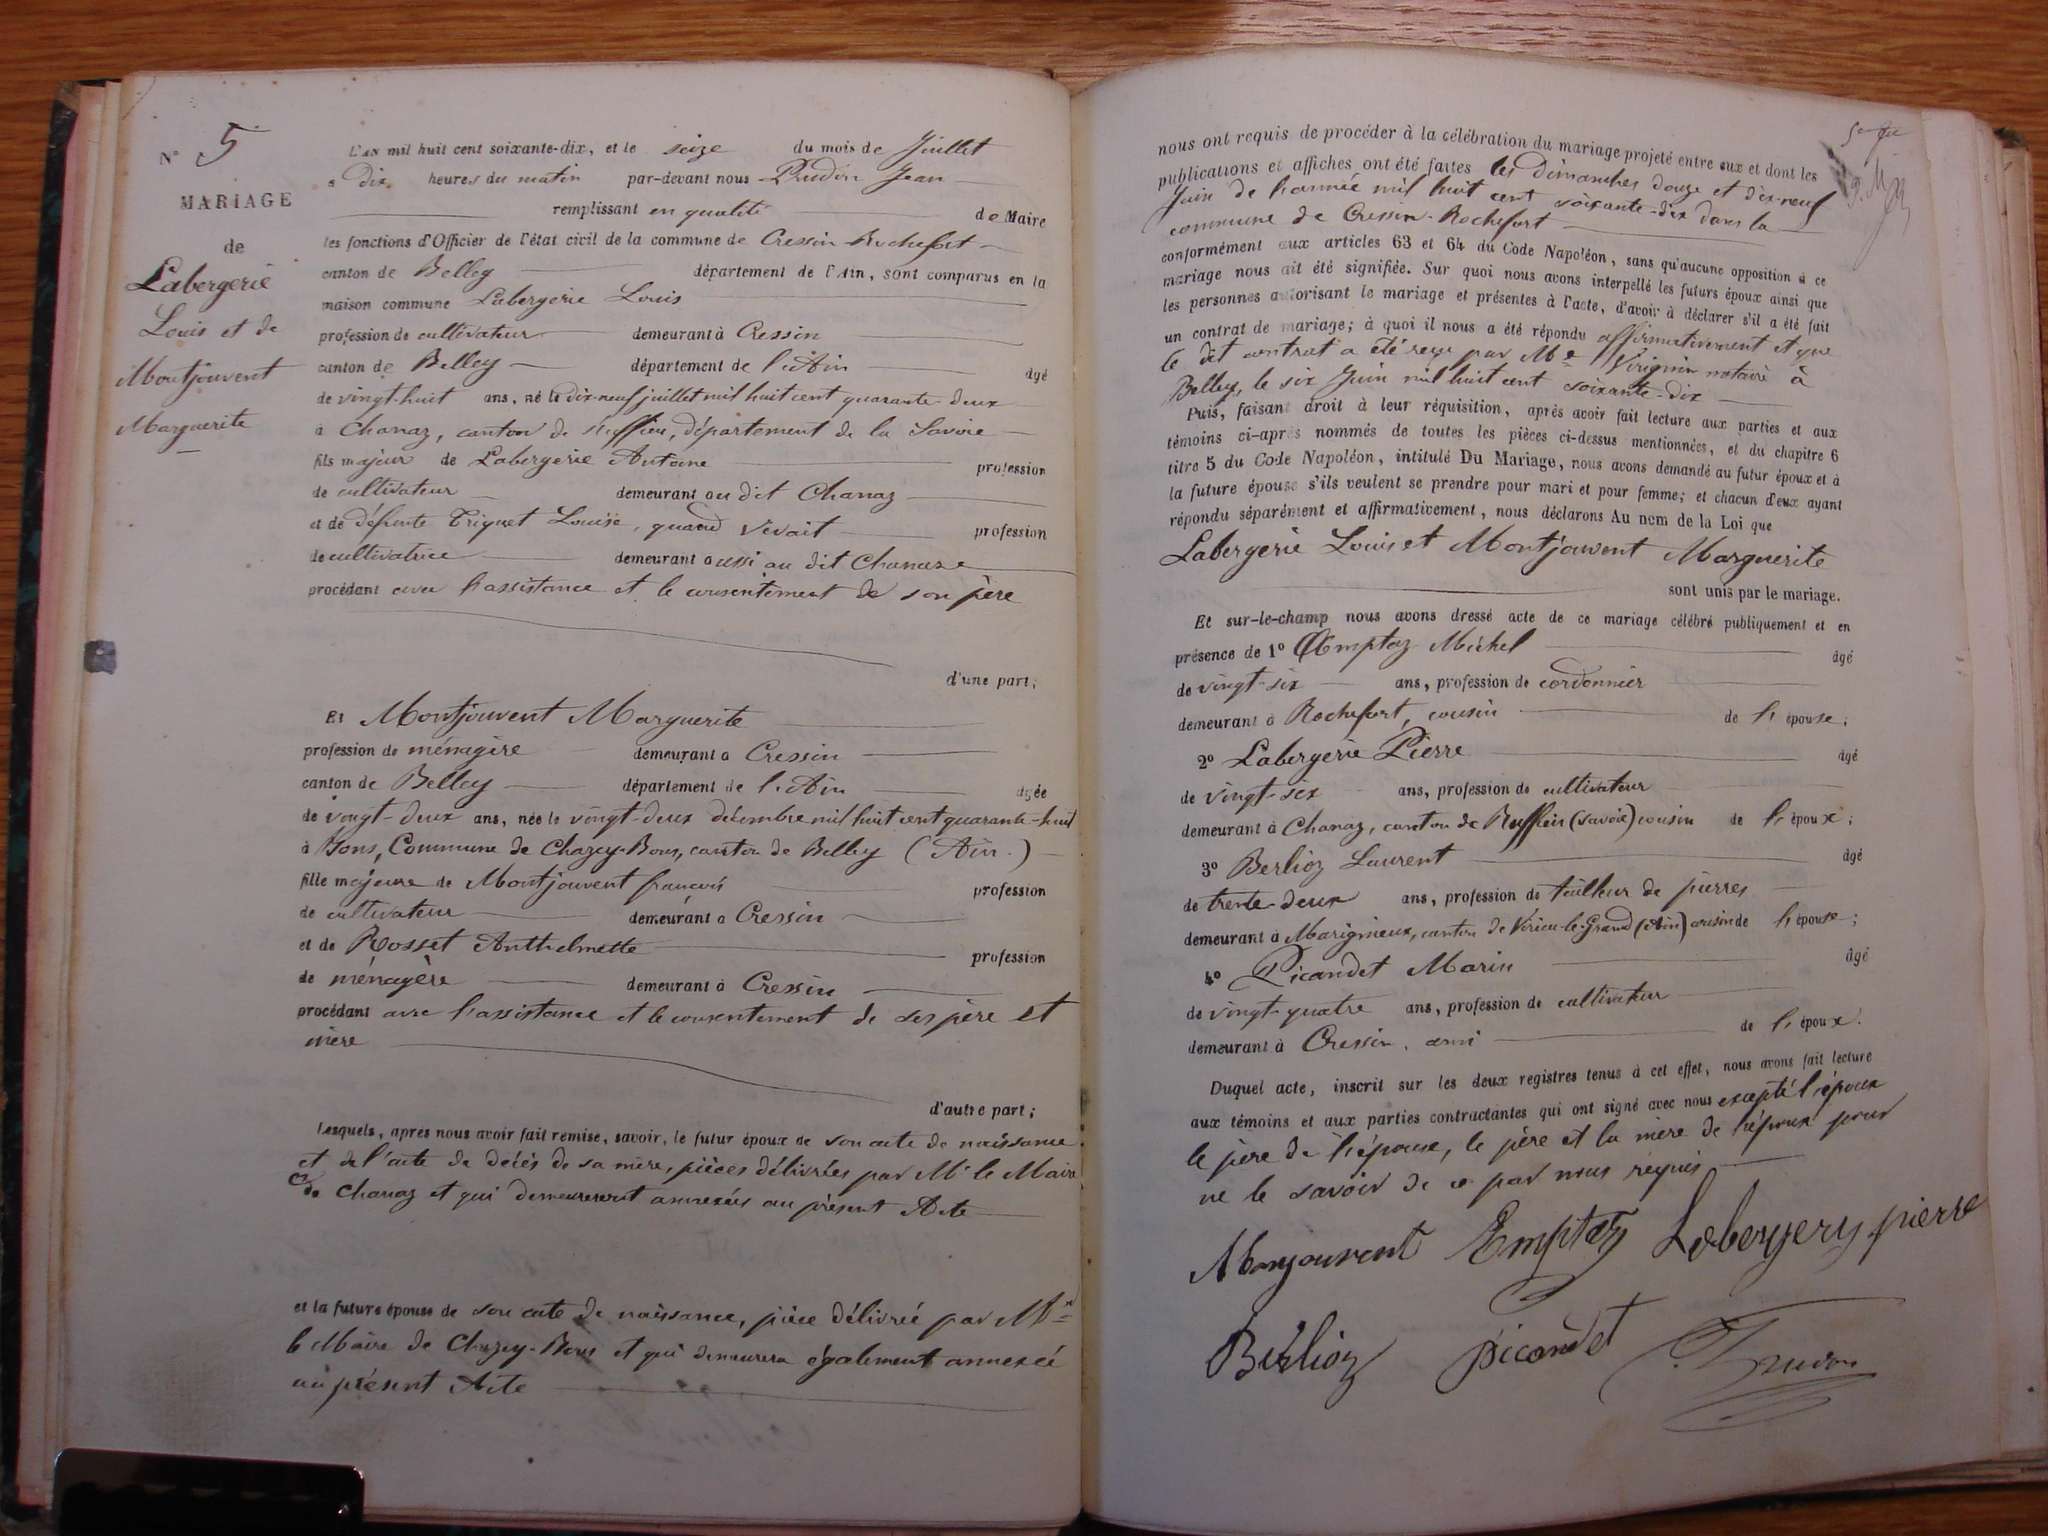 N° 5
MARIAGE
de
Labergerie
Louis et de
Montjouvent
Marguerite
L'AN mil huit cent soixante-dix, et le seize du mois de Juillet
à dix heures du matin par-devant nous Prudon Jean
remplissant en qualité de Maire
les fonctions d'Officier de l'état civil de la commune de Cressin-Rochefort
canton de Belley département de l'Ain, sont comparus en la
maison commune Labergerie Louis
profession de cultivateur demeurant à Cressin
canton de Belley département de l'Ain âgé
de vingt-huit ans, né le dix-neuf juillet mil huit cent quarante deux
à Chanaz, canton de Ruffieu, département de la Savoie
fils majeur de Labergerie Antoine profession
de cultivateur demeurant au dit Chanaz
et de défunte Triquet Louise, quand vivait profession
de cultivatrice demeurant aussi au dit Chanaz
procédant avec l'assistance et le consentement de son père
d'une part;
Et Montjouvent Marguerite
profession de ménagère demeurant à Cressin
canton de Belley département de l'Ain âgée
de vingt-deux ans, née le vingt-deux décembre mil huit cent quarante-huit
à Bons, Commune de Chazey-Bons, canton de Belley (Ain.)
fille majeure de Montjouvent françois profession
de cultivateur demeurant à Cressin
et de Rosset Anthelmette profession
de ménagère demeurant à Cressin
procédant avec l'assistance et le consentement de ses père et
mère
d'autre part;
Lesquels, après nous avoir fait remise, savoir, le futur époux de son acte de naissance
et de l'acte de décès de sa mère, pièces délivrées par Mr le Maire
de Chanaz et qui demeureront annexées au présent Acte
et la future épouse de son acte de naissance, pièce délivrée par Mr
le Maire de Chazey-Bons et qui demeurera également annexée
au présent Acte
nous ont requis de procéder à la célébration du mariage projeté entre eux et dont les
publications et affiches ont été faites les Dimanches douze et dix-neuf
Juin de l'année mil huit cent soixante-dix dans la
commune de Cressin-Rochefort
conformément aux articles 63 et 64 du Code Napoléon, sans qu'aucune opposition à ce
mariage nous ait été signifiée. Sur quoi nous avons interpellé les futurs époux ainsi que
les personnes autorisant le mariage et présentes à l'acte, d'avoir à déclarer s'il a été fait
un contrat de mariage; à quoi il nous a été répondu affirmativement et que
le dit contrat a été reçu par Me Virignin notaire à
Belley, le six Juin mil huit cent soixante-dix
Puis, faisant droit à leur réquisition, après avoir fait lecture aux parties et aux
témoins ci-après nommés de toutes les pièces ci-dessus mentionnées, et du chapitre 6
titre 5 du Code Napoléon, intitulé Du Mariage, nous avons demandé au futur époux et à
la future épouse s'ils veulent se prendre pour mari et pour femme; et chacun d'eux ayant
répondu séparément et affirmativement, nous déclarons Au nom de la Loi que
Labergerie Louis et Montjouvent Marguerite
sont unis par le mariage.
Et sur-le-champ nous avons dressé acte de ce mariage célébré publiquement et en
présence de 1° Emptaz Michel âgé
de vingt-six ans, profession de cordonnier
demeurant à Rochefort, cousin de l'épouse;
2° Labergerie Pierre âgé
de vingt-six ans, profession de cultivateur
demeurant à Chanaz, canton de Ruffieu (Savoie) cousin de l'époux;
3° Berlioz Laurent âgé
de trente-deux ans, profession de tailleur de pierres
demeurant à Marignieux, canton de Virieu-le-Grand (Ain) cousin de l'épouse;
4° Picandet Marin âgé
de vingt-quatre ans, profession de cultivateur
demeurant à Cressin, ami de l'époux.
Duquel acte, inscrit sur les deux registres tenus à cet effet, nous avons fait lecture
aux témoins et aux parties contractantes qui ont signé avec nous excepté l'époux
le père de l'épouse, le père et la mère de l'époux pour
ne le savoir de ce par nous requis
Monjouvent Emptaz Labergery pierre
Berlioz picandet Prudon